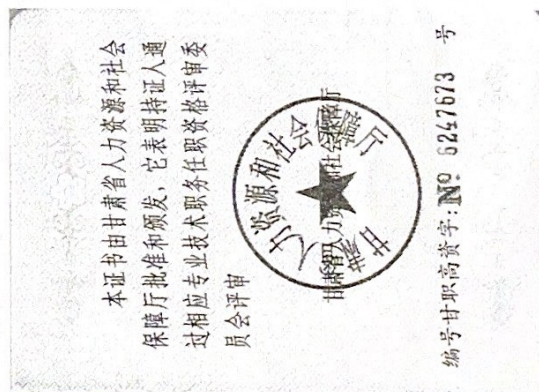 本证书由甘肃省人力资源和社会
保障厅批准和颁发，它表明持证人通
过相应专业技术职务任职资格评审委
员会评审
甘肃省人力资源和社会保障厅
甘肃省人力资源和社会保障厅
编号甘职高资字:№ 6247673 号